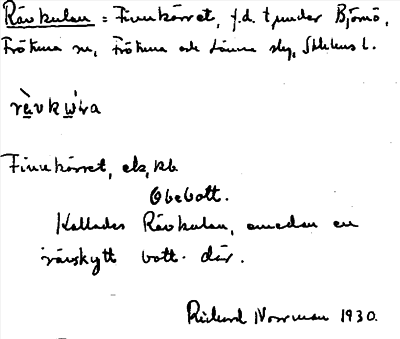 Rävkulan = Finnkärret, f.d. t, under Björnö,
Frötuna sn, Frötuna och Länna slg, Sthlms l.
rävkwra
Finnkärret, ek, kb.
Obebott.
Kallades Rävkulan, emedan en
rävskytt bott. där.
Richard Norrman 1930.